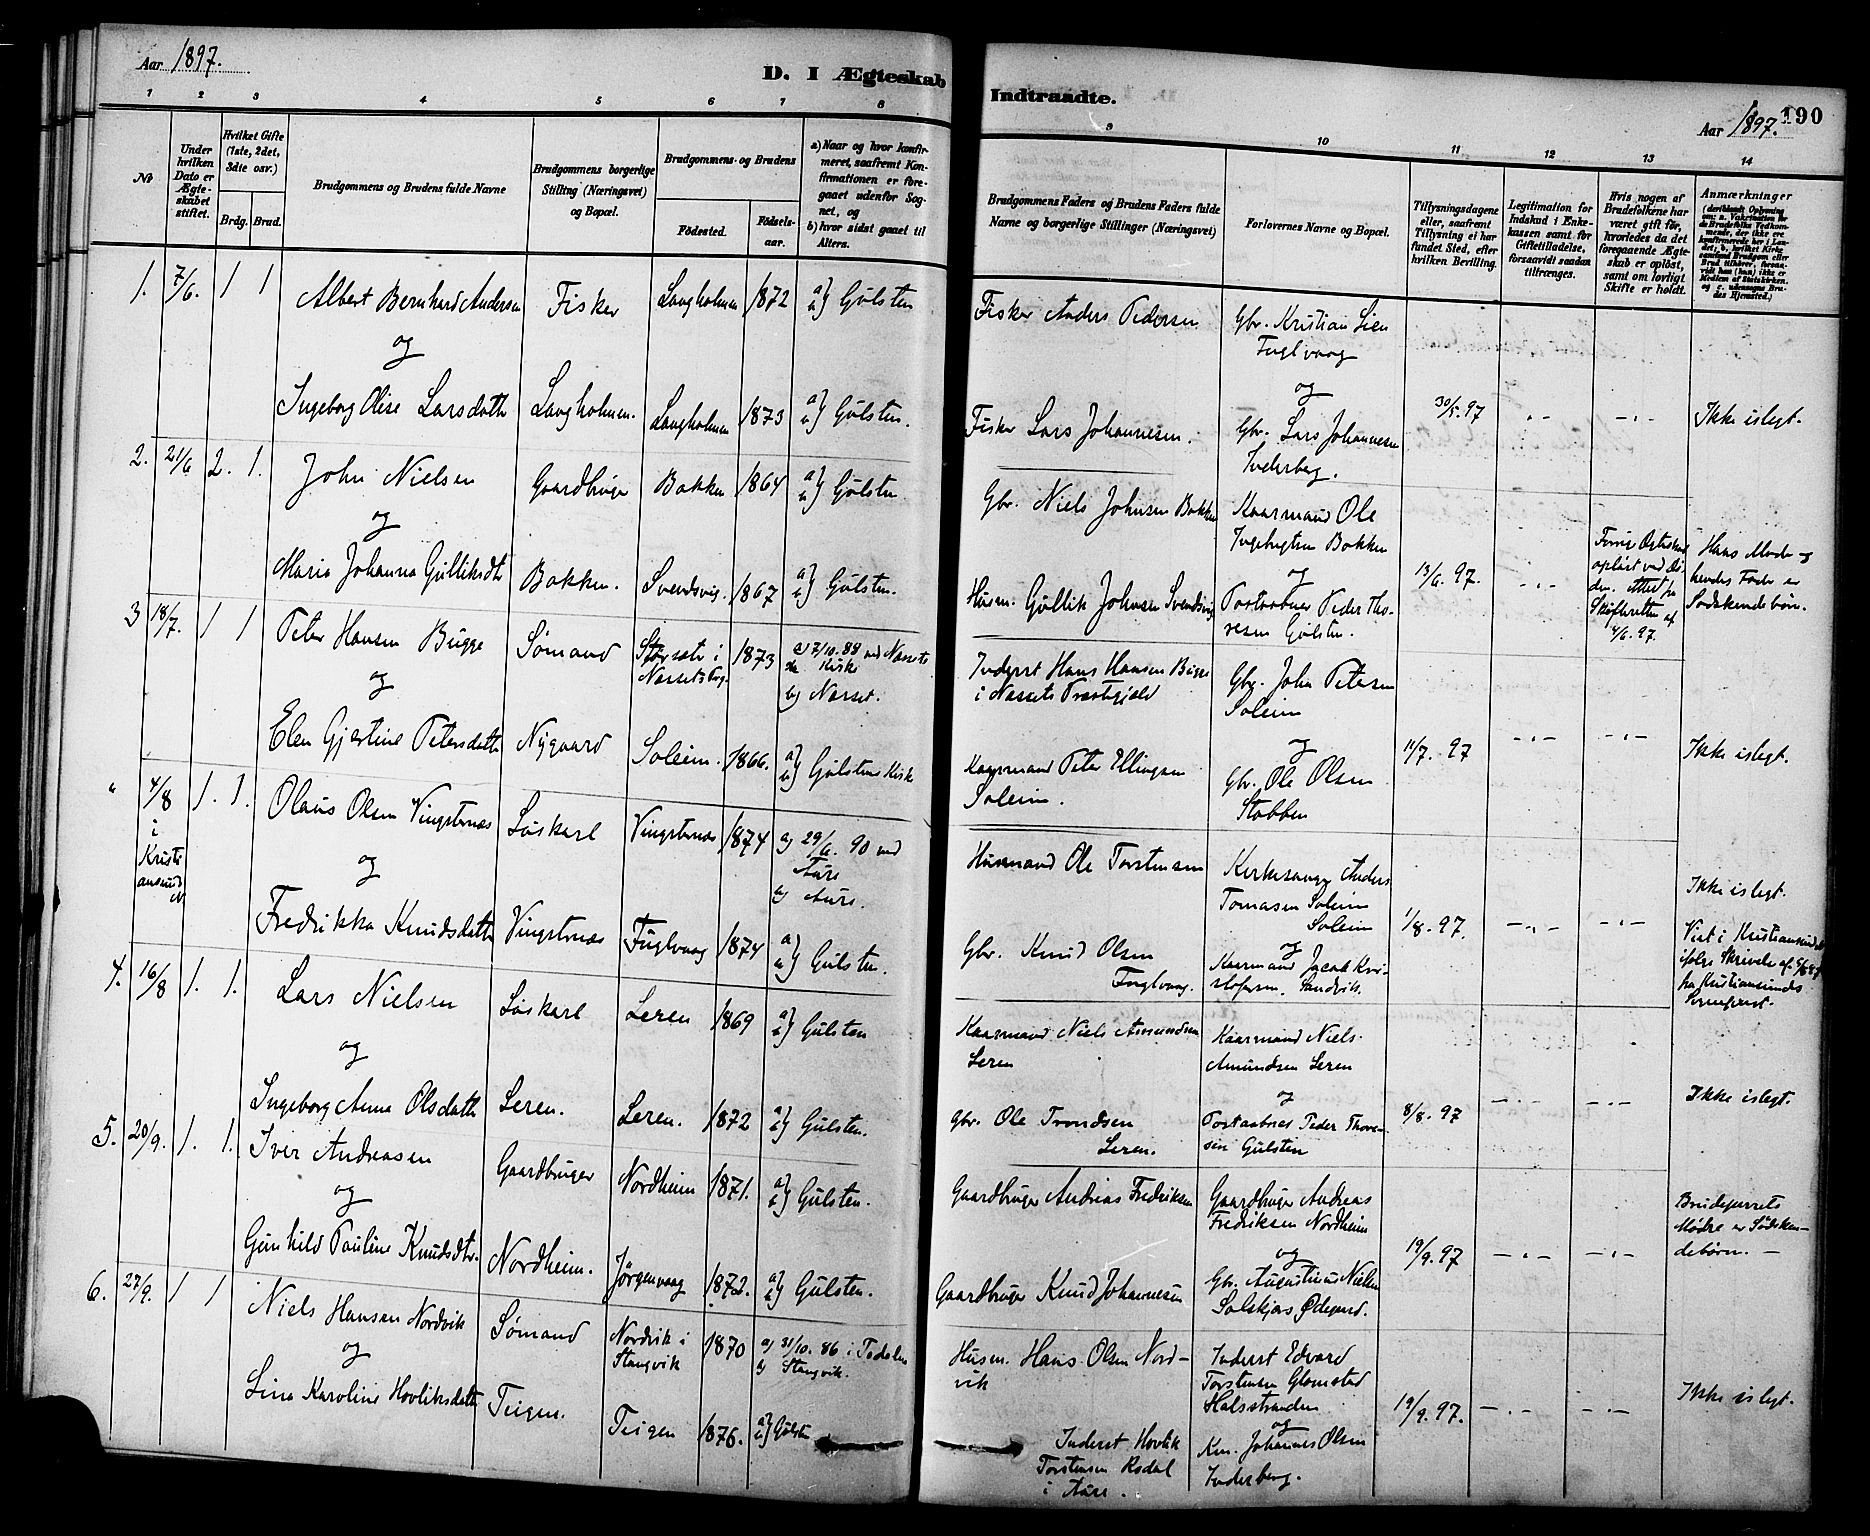 Aar 1897.
D. I Ægteskab
Indtraadte.
Aar 1897.
190
1 2 3 4 5 6 7 8
9 10 11 12 13 14
No
Under hvilken Dato er Ægteskabet stiftet.
Hvilket Gifte (1ste, 2det, 3die osv.)
Brdg. Brud.
Brudgommens og Brudens fulde Navne
Brudgommens borgerlige Stilling (Næringsvei) og Bopæl.
Brudgommens- og Brudens
Fødested.
Fødsels-aar.
a) Naar og hvor konfirmeret, saafremt Konfirmationen er foregaaet udenfor Sognet, og
b) hvor sidst gaaet til Alters.
Brudgommens Faders og Brudens Faders fulde Navne og borgerlige Stillinger (Næringsvei)
Forlovernes Navne og Bopæl.
Tillysningsdagene eller, saafremt Tillysning ei har fundet Sted, efter hvilken Bevilling.
Legitimation for Indskud i Enkekassen samt for Giftetilladelse, forsaavidt saadan tiltrænges.
Hvis nogen af Brudefolkene har været gift før, hvorledes da det foregaaende Ægteskab er opløst, samt om lovligt Skifte er holdt.
Anmærkninger
1. 7/6. 1 1 Albert Bernhard Andersen Fisker Langholmen 1872 a) b) Gülsten
og
Ingeborg Olise Larsdatte Langholmen. Langholmen 1873 a) b) Gülsten.
Fisker Anders Pedersen
Gbr. Kristian Lien
Fuglvaag
og
Fisker Lars Johannesen.
Gbr. Lars Johannesen
Inderberg.
30/5. 97 - - Ikke islegt.
2. 21/6 2. 1. John Nielsen Gaardbruger Bakken 1864 a) b) Gülsten
og
Maria Johanna Gülliksdtr Bakken. Svendsvig. 1867 a) b) Gülsten.
Gbr. Niels Johnsen Bakken
Kaarmand Ole
Ingebrigtsen Bakken
og
Husm. Güllik Johnsen Svendsvig
Postaabner Peder Thoresen Gülsten.
13/6. 97.
Hans Moder og
hendes Fader er
Sødskendebørn.
3 18/7. 1 1 Peter Hansen Bügge Sømand 1873 a) 7/10. 88 ved Næssets Kirke
b) Næsset.
og
Elen Gjertine Petersdatte Nygaard Soleim. 1866. a) b) Gülstens Kirke
Inderst Hans Hansen Bügge
i Næssets Præstegjeld
Gbr. John Petersen
Soleim
og
Kaarmand Peter Ellingsen
Soleim.
Gbr. Ole Olsen
Stobben
11/7. 97 - - Ikke islegt.
" 4/8 i Kristiansund N 1. 1. Olaus Olsen Vingsternæs Løskarl Vingsternæs 1874 a) 29/6. 90 ved
Aure
b) Aure.
og
Fredrikka Knudsdatte Vingstrnæs Füglvaag 1874 a) b) Gülsten.
Husmand Ole Torstensen
Kirkesanger Anders
Tomasen Soleim
Soleim
og
Gbr. Knud Olsen
Fuglvaag.
Kaarmand Jacob Kristofersen. Sandvik.
1/8. 97. - - Ikke islegt.
Viet i Kristiansund
4. 16/8 1. 1. Lars Nielsen Løskarl Leren 1869 a) b) Gülsten
og
Ingeborg Anne Olsdatte Leren. Leren. 1872 a) b) Gülsten.
Kaarmand Niels Amundsen
Leren
Kaarmand Niels
Amundsen Leren
og
Gbr. Ole Trondsen
Leren.
Postaabner Peder Thoresen Gülsten
8/8. 97 - - Ikke islegt.
5. 20/9. 1. 1. Iver Andreasen Gaardbruger Nordheim 1871. a) b) Gülsten.
og
Günhild Pauline Knudsdtr. Nordheim. Jørgenvaag 1872. a) b) Gülsten.
Gaardbruger Andreas Fredriksen
Gaardbruger Andreas
Fredriksen Nordheim
og
Gaardbruger Knud Johannesen
Gbr. Augustinus Nielsen
Solskjærs Ødegaard.
19/9. 97 - - Brudeparrets
Mødre er Sødskendebørn. -
6. 27/9. 1 1 Niels Hansen Nordvik Sømand Nordvik i
Stangvik 1870 a) 31/10. 86 i Todalen
b) Stangvik.
og
Lina Karoline Hovliksdatte Teigen. Teigen 1876. a) b) Gülsten
Husm. Hans Olsen Nordvik
Inderst Edvard
Torstensen Glomstad
Halsstranden
og
Inderst Hovlik
Torstensen Rodal
i Aure.
Km. Johannes Olsen
Inderberg.
19/9. 97. - - Ikke islegt.